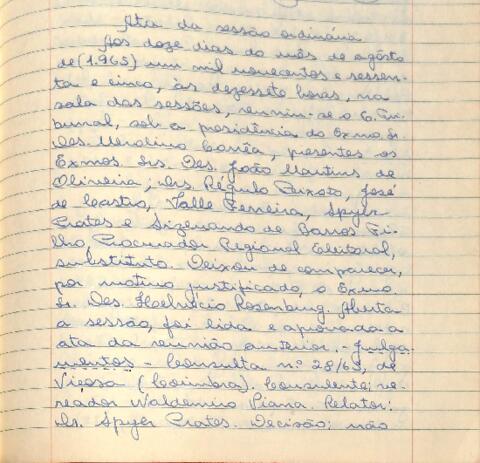 Ata da sessão ordinária
Aos doze dias do mês de agôsto
de (1.965) um mil novecentos e sessen-
ta e cinco, às dezessete horas, na
sala das sessões, reuniu-se o E. Tri-
bunal, sob a presidência do Exmo. Sr.
Des. Merolino Corrêa, presentes os
Exmos. Srs. Des. João Martins de
Oliveira; Drs. Régulo Peixoto, José
de Castro, Valle Ferreira, Spyer
Prates e Sizenando de Barros Fi-
lho Procurador Regional Eleitoral,
substituto. Deixou de comparecer,
por motivo justificado, o Exmo.
Sr. Des. Helvécio Rosenburg. Aberta
a sessão, foi lida e aprovada a
ata da reunião anterior. - Julga
mentos - Consulta n.º 28/65, de
Viçosa (Coimbra). Consulente; ve-
reador Waldemiro Piana. Relator:
Dr. Spyer Prates. Decisão: não